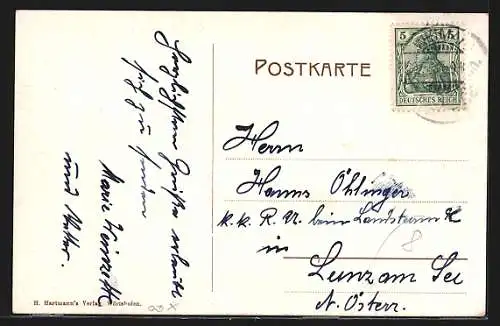 Herzlichsten Grüße erlaubt
sich zu senden
Marie
und Mutter.
POSTKARTE
5
DEUTSCHES REICH
Herrn
Hanns Öhlinger
k. k. R. U. beim Landsturm
in
Lunz am See
N. Österr.
8
H. Hartmann's Verlag, Wörishofen.